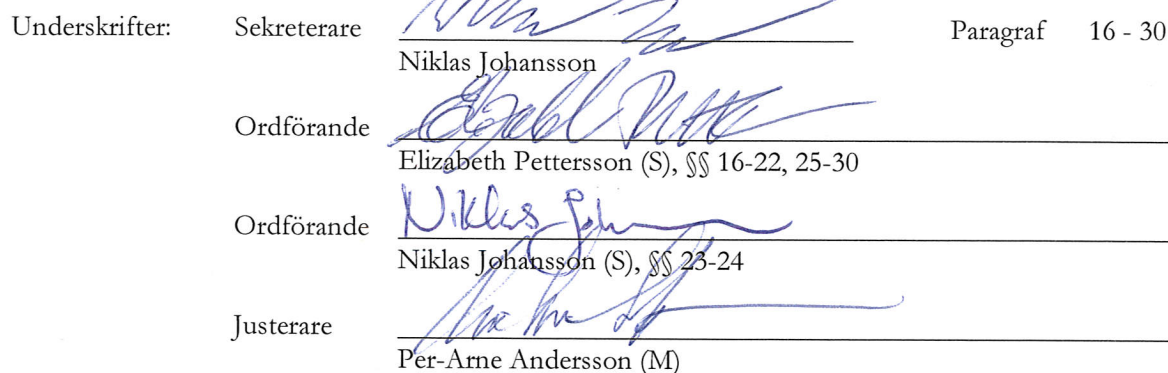 Underskrifter: Sekreterare Paragraf 16 - 30
Niklas Johansson
Ordförande
Elizabeth Pettersson (S), §§ 16-22, 25-30
Ordförande Niklas Joh
Niklas Johansson (S), §§ 23-24
Justerare
Per-Arne Andersson (M)